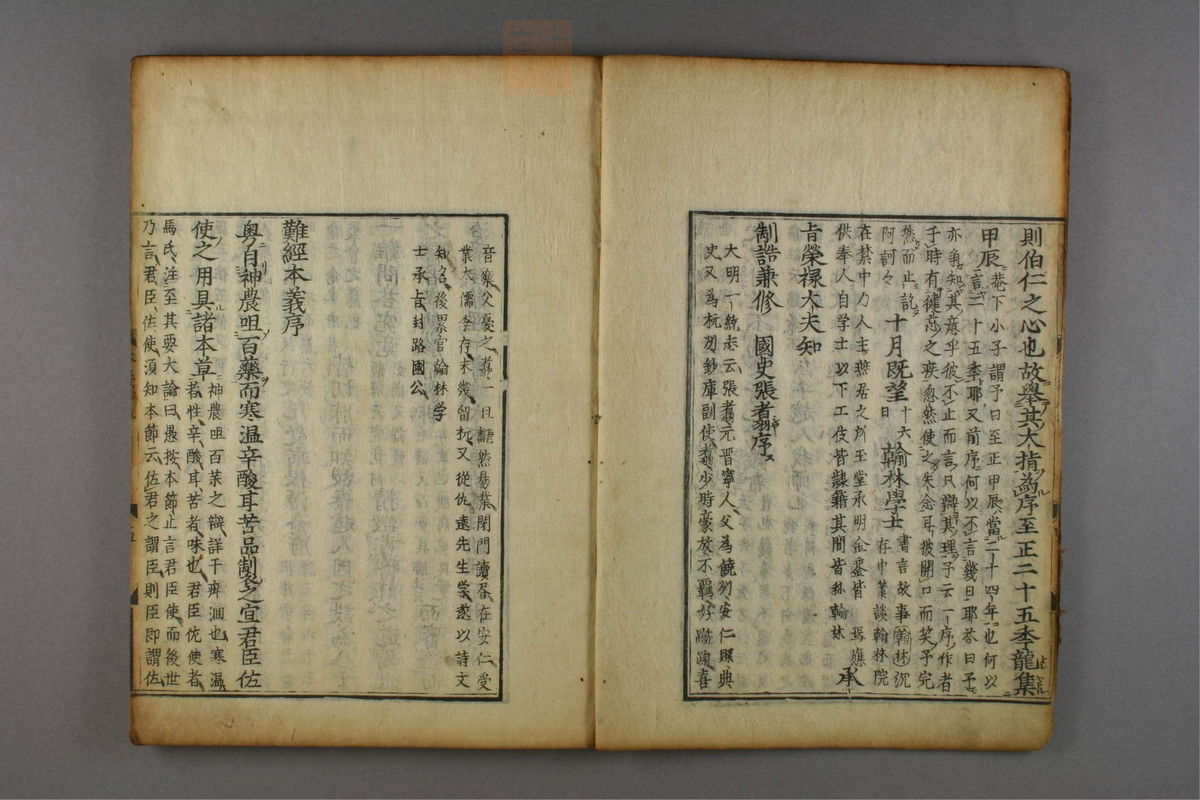 則伯仁之心也故舉其大指為序至正二十五秊龍集
甲辰 巷下小子謂予曰至正甲辰當二十四年也何以
言二十五秊耶又前序何以不言幾日耶荅曰予
亦毎知其意乎彼不止而言只辯其理予云一序作者
于時有健忘之疾忽然使之失念耳彼開口而笑予完
然而止訖
阿訶々 十月既望 十六日 翰林學士 書言故事翰林沉
存中筆談翰林院
在禁中乃人主燕居之所玉堂承明金鑾皆 焉應
供奉人自学士以下工伎皆隷籍其間皆稱翰林 承
旨榮祿大夫知
制誥兼修 國史張翥序
大明一統志云張翥元晋寧人父為饒刕安仁縣典
史又為杭刕鈔庫副使翥少時豪放不羈好蹴踘喜
音樂父憂之翥一旦翻然易業閉門讀昼在安仁受
業大儒李存未幾留杭又從仇遠先生学遂以詩文
知名後累官翰林学
士承旨封路國公
難經本義序
粤自神農咀百藥而寒温辛酸耳苦品制之宜君臣佐
使之用具諸本草 神農咀百茱之辯詳于齊洄也寒温
者性辛酸耳苦者味也君臣佐使者
馬氏注至其要大論曰愚按本節止言君臣使而後世
乃言君臣佐使須知本節云佐君之謂臣則臣即謂佐